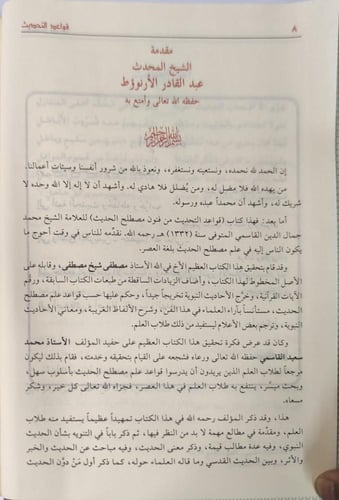 ٨ قواعد التحديث
مقدمة
الشيخ المحدث
عبد القادر الأرنوؤط
حفظه الله تعالى وأمتع به
بسم الله الرحمن الرحيم
إن الحمد لله نحمده، ونستعينه ونستغفره، ونعوذ بالله من شرور أنفسنا وسيئات أعمالنا.
من يهده الله فلا مضل له، ومن يُضلل فلا هادي له. وأشهد أن لا إله إلا الله وحده لا
شريك له، وأشهد أن محمداً عبده ورسوله.
أما بعد: فهذا كتاب (قواعد التحديث من فنون مصطلح الحديث) للعلامة الشيخ محمد
جمال الدين القاسمي المتوفى سنة (١٣٣٢) هـ رحمه الله. نقدِّمه للناس في وقت أحوج ما
يكون الناس إليه في علم مصطلح الحديث بلغة العصر.
وقد قام بتحقيق هذا الكتاب العظيم الأخ في الله الأستاذ مصطفى شيخ مصطفى، وقابله على
الأصل المخطوط لهذا الكتاب، وأضاف الزيادات الساقطة من طبعات الكتاب السابقة، ورقَّم
الآيات القرآنية، وخرَّج الأحاديث النبوية تخريجاً جيداً، وحكم عليها حسب قواعد علم مصطلح
الحديث، مستأنساً بآراء العلماء في هذا الفن، وشرح الألفاظ الغريبة، ومعاني الأحاديث
النبوية، وترجم بعض الأعلام ليستفيد من ذلك طلاب العلم.
وكان قد عرض فكرة تحقيق هذا الكتاب العظيم على حفيد المؤلف الأستاذ محمد
سعيد القاسمي حفظه الله تعالى ورعاه فشجعه على القيام بتحقيقه وخدمته، فقام بذلك ليكون
مرجعاً لطلاب العلم الذين يريدون أن يدرسوا قواعد علم مصطلح الحديث بأسلوب سهل،
وبحث ميسَّر، ينتفع به طلاب العلم في هذا العصر، فجزاه الله تعالى كل خير، وشكر
مسعاه.
هذا، وقد ذكر المؤلف رحمه الله في هذا الكتاب تمهيداً عظيماً يستفيد منه طلاب
العلم، ومقدِّمة في مطالع مهمة لا بد من النظر فيها، ثم ذكر باباً في التنويه بشأن الحديث
النبوي، وفيه عدة مطالب قيمة، وذكر معنى الحديث، وفيه مباحث عن الحديث والخبر
والأثر، وبين الحديث القدسي وما قاله العلماء حوله، كما ذكر أول مَنْ دوَّن الحديث